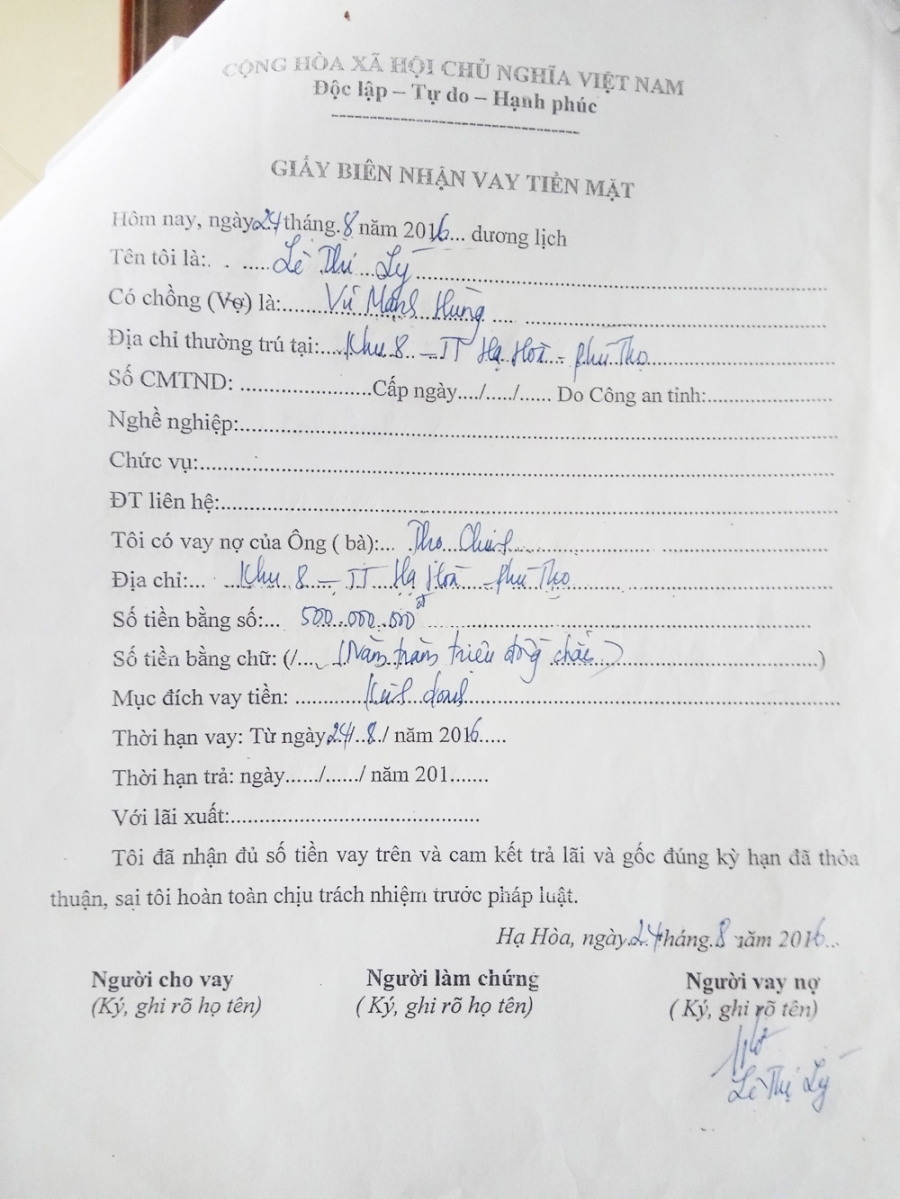 CỘNG HÒA XÃ HỘI CHỦ NGHĨA VIỆT NAM
Độc lập – Tự do – Hạnh phúc
GIẤY BIÊN NHẬN VAY TIỀN MẶT
Hôm nay, ngày 24 tháng 8 năm 2016... dương lịch
Tên tôi là: Lê Thị Lý
Có chồng (Vợ) là: Vũ Mạnh Hùng
Địa chỉ thường trú tại: Khu 8 – TT Hạ Hoà – Phú Thọ
Số CMTND: ....................Cấp ngày..../...../...... Do Công an tỉnh:....................
Nghề nghiệp:....................
Chức vụ:....................
ĐT liên hệ:....................
Tôi có vay nợ của Ông ( bà):... Thọ
Địa chỉ:... Khu 8 – TT Hạ Hoà – Phú Thọ
Số tiền bằng số:... 500.000.000đ
Số tiền bằng chữ: (/.... (Năm trăm triệu đồng chẵn) ....)
Mục đích vay tiền: Kinh doanh
Thời hạn vay: Từ ngày 24/ 8 / năm 2016.....
Thời hạn trả: ngày....../....../ năm 201.......
Với lãi xuất:....................
Tôi đã nhận đủ số tiền vay trên và cam kết trả lãi và gốc đúng kỳ hạn đã thỏa
thuận, sai tôi hoàn toàn chịu trách nhiệm trước pháp luật.
Hạ Hòa, ngày 24 tháng 8 năm 2016...
Người cho vay Người làm chứng Người vay nợ
(Ký, ghi rõ họ tên) ( Ký, ghi rõ họ tên) ( Ký, ghi rõ tên)
Lê Thị Lý